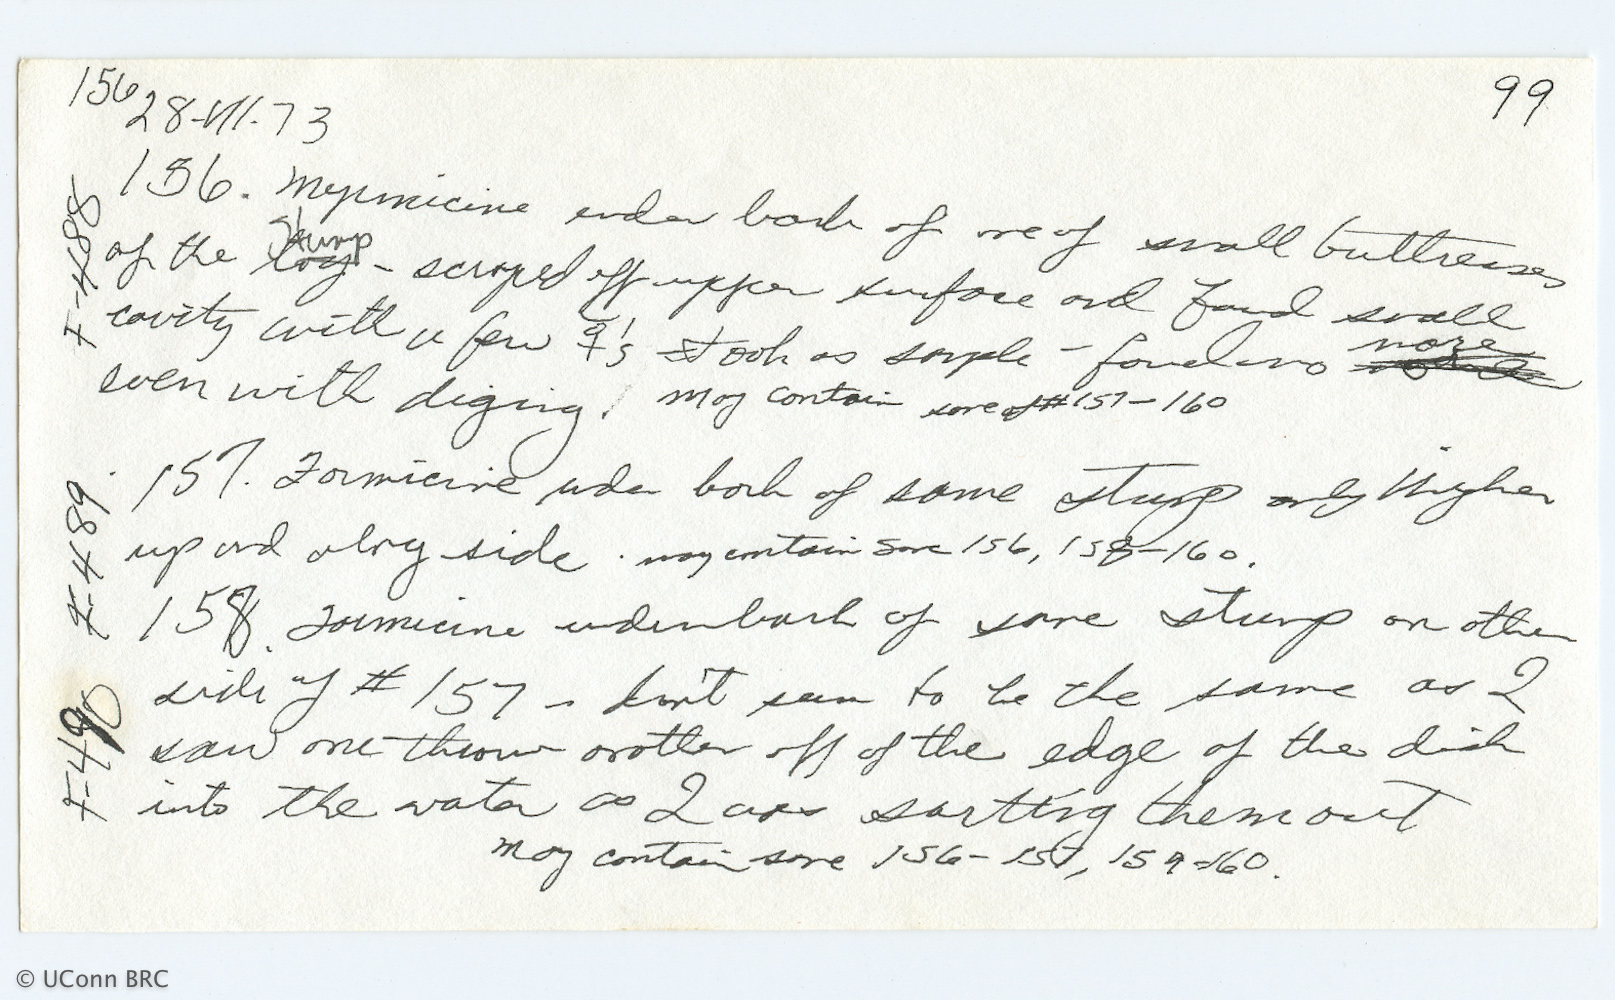 156
99
28-VII-73
156. Myrmicine under bark of one of small buttresses
of the log stump - scraped off upper surface and found small
cavity with a few ☿'s took as sample - found no more
even with diging! May contain some of # 157-160
157. Formicine under bark of same stump only higher
up and along side. may contain some 156, 158-160.
158. Formicine under bark of same stump on other
side of # 157 - don't seem to be the same as I
saw one throw another off of the edge of the dish
into the water as I was sorting them out
May contain some 156-157, 159-160.
F-488
F-489
F-490
© UConn BRC